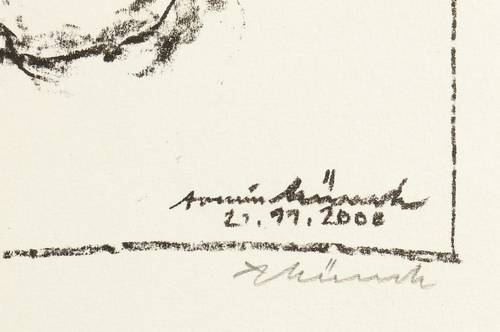 Armin Münch
21.11.2000
AMünch